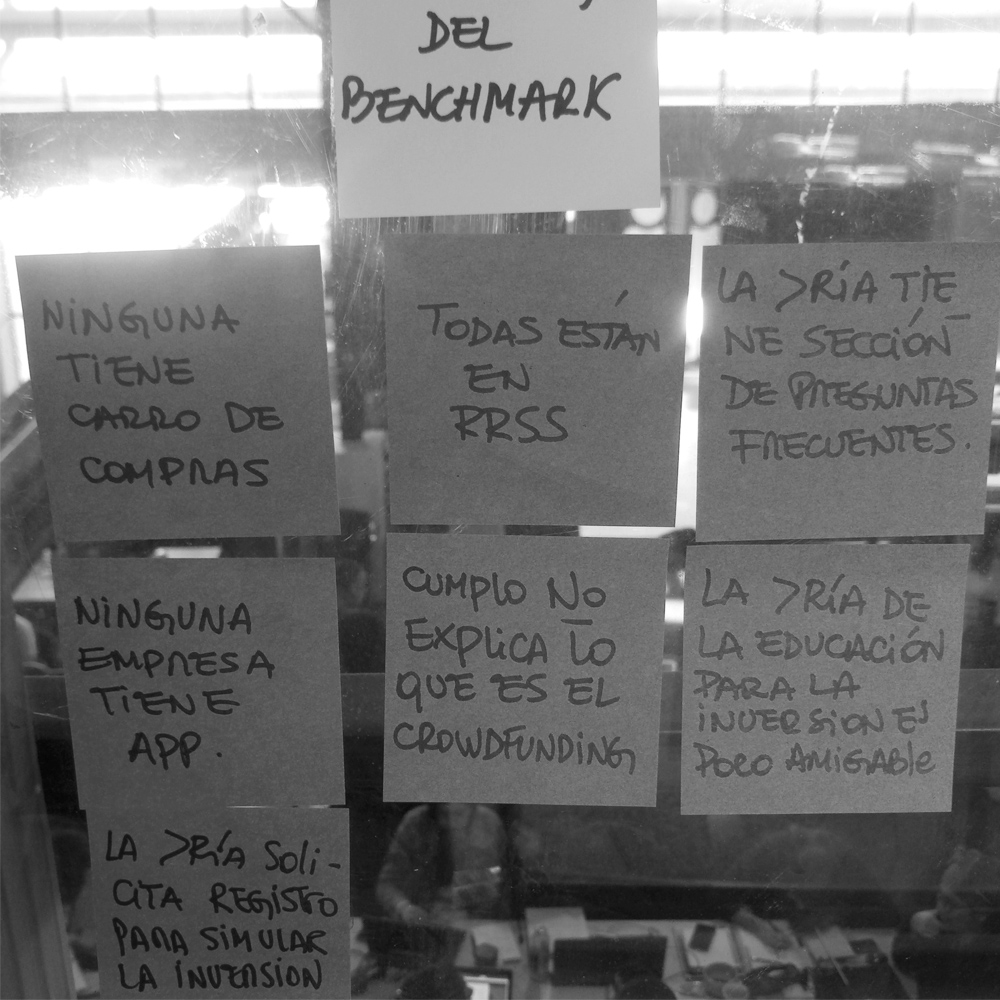 DEL
BENCHMARK
NINGUNA
TIENE
CARRO DE
COMPRAS
TODAS ESTÁN
EN
RRSS
LA >RÍA TIE
NE SECCIÓN
DE PREGUNTAS
FRECUENTES.
NINGUNA
EMPRESA
TIENE
APP.
CUMPLO NO
EXPLICA LO
QUE ES EL
CROWDFUNDING
LA >RÍA DE
LA EDUCACIÓN
PARA LA
INVERSION ES
POCO AMIGABLE
LA >RÍA SOLI-
CITA REGISTRO
PARA SIMULAR
LA INVERSION